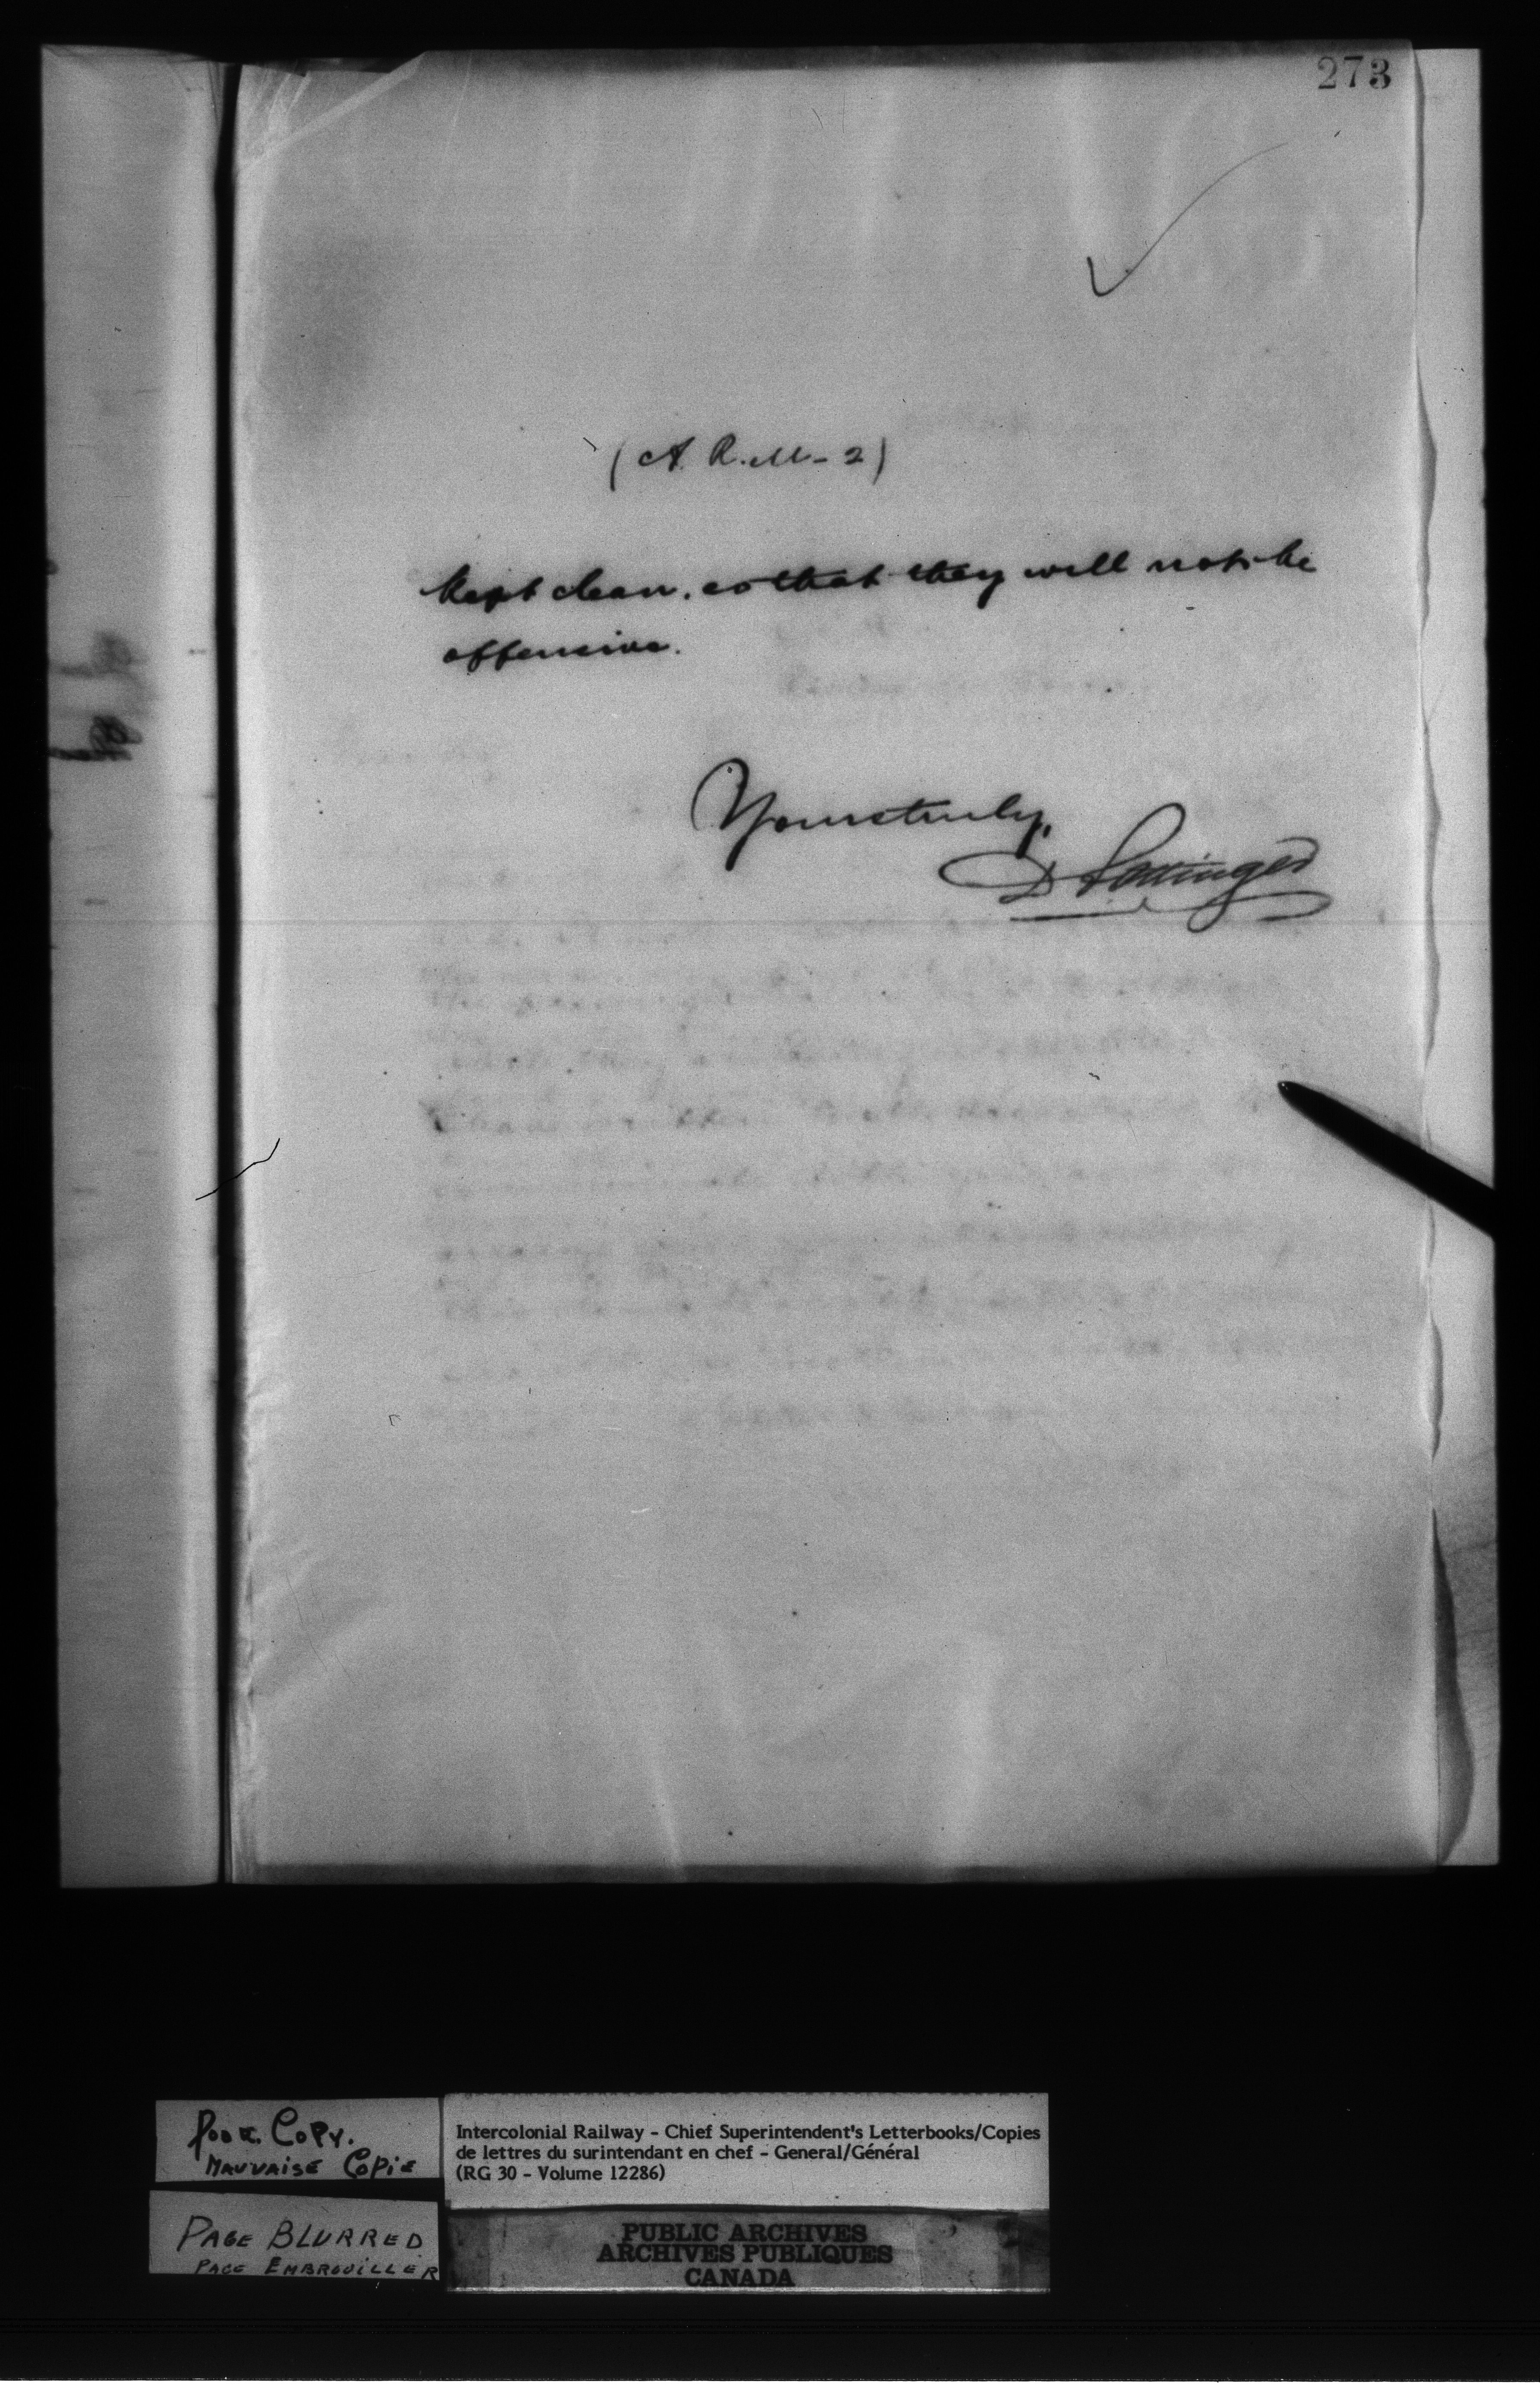 273
(A. R. M - 2)
kept clean, so that they will not be
offensive.
Yours truly,
D Pottinger
Poor Copy.
Mauvaise Copie
Intercolonial Railway - Chief Superintendent's Letterbooks/Copies
de lettres du surintendant en chef - General/Général
(RG 30 - Volume 12286)
PAGE BLURRED
PAGE EMBROUILLER
PUBLIC ARCHIVES
ARCHIVES PUBLIQUES
CANADA